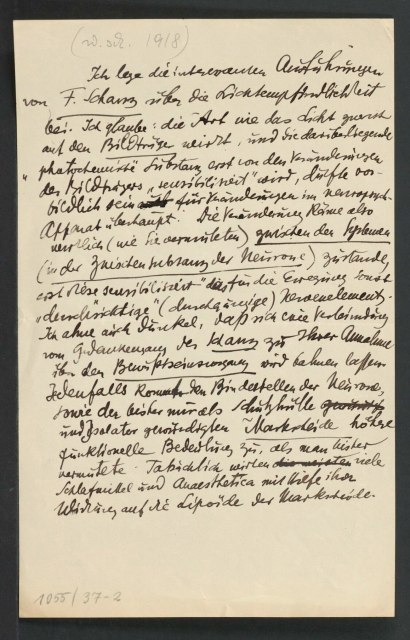 (z. Zt. 1918)
Ich lege die interessanten Ausführungen
von F. Schanz über die Lichtempfindlichkeit
bei. Ich glaube: die Art wie das Licht zuerst
auf den Bildträger wirkt, und die darüberliegende
photochemische Substanz erst von den Veränderungen
des Bildträgers „sensibilisiert" wird, dürfte vor-
bildlich sein für Veränderungen im nervösen
Apparat überhaupt. Die Veränderung käme also
(wie Sie vermuteten) zwischen den Systemen
(in der Zwischensubstanz der Neurone) zustande,
erst diese sensibilisiert für die Erregung sonst
„durchsichtige" (durchgängige) Nervenelement.
Ich ahne auch dunkel, daß sich eine Verbindung
vom Gedankengang des Schanz zu Ihrer Annahme
über den Bewußtseinsvorgang wird bahnen lassen.
Jedenfalls kommt den Bindestellen der Neurone,
sowie der bisher nur als Schutzhülle
und Isolator gewürdigten Markscheide höhere
funktionelle Bedeutung zu, als man bisher
vermutete. Tatsächlich wirken viele
Schlafmittel und Anaesthetica mit Hilfe ihrer
Wirkung auf die Lipoide der Markscheide.
1055/37-2